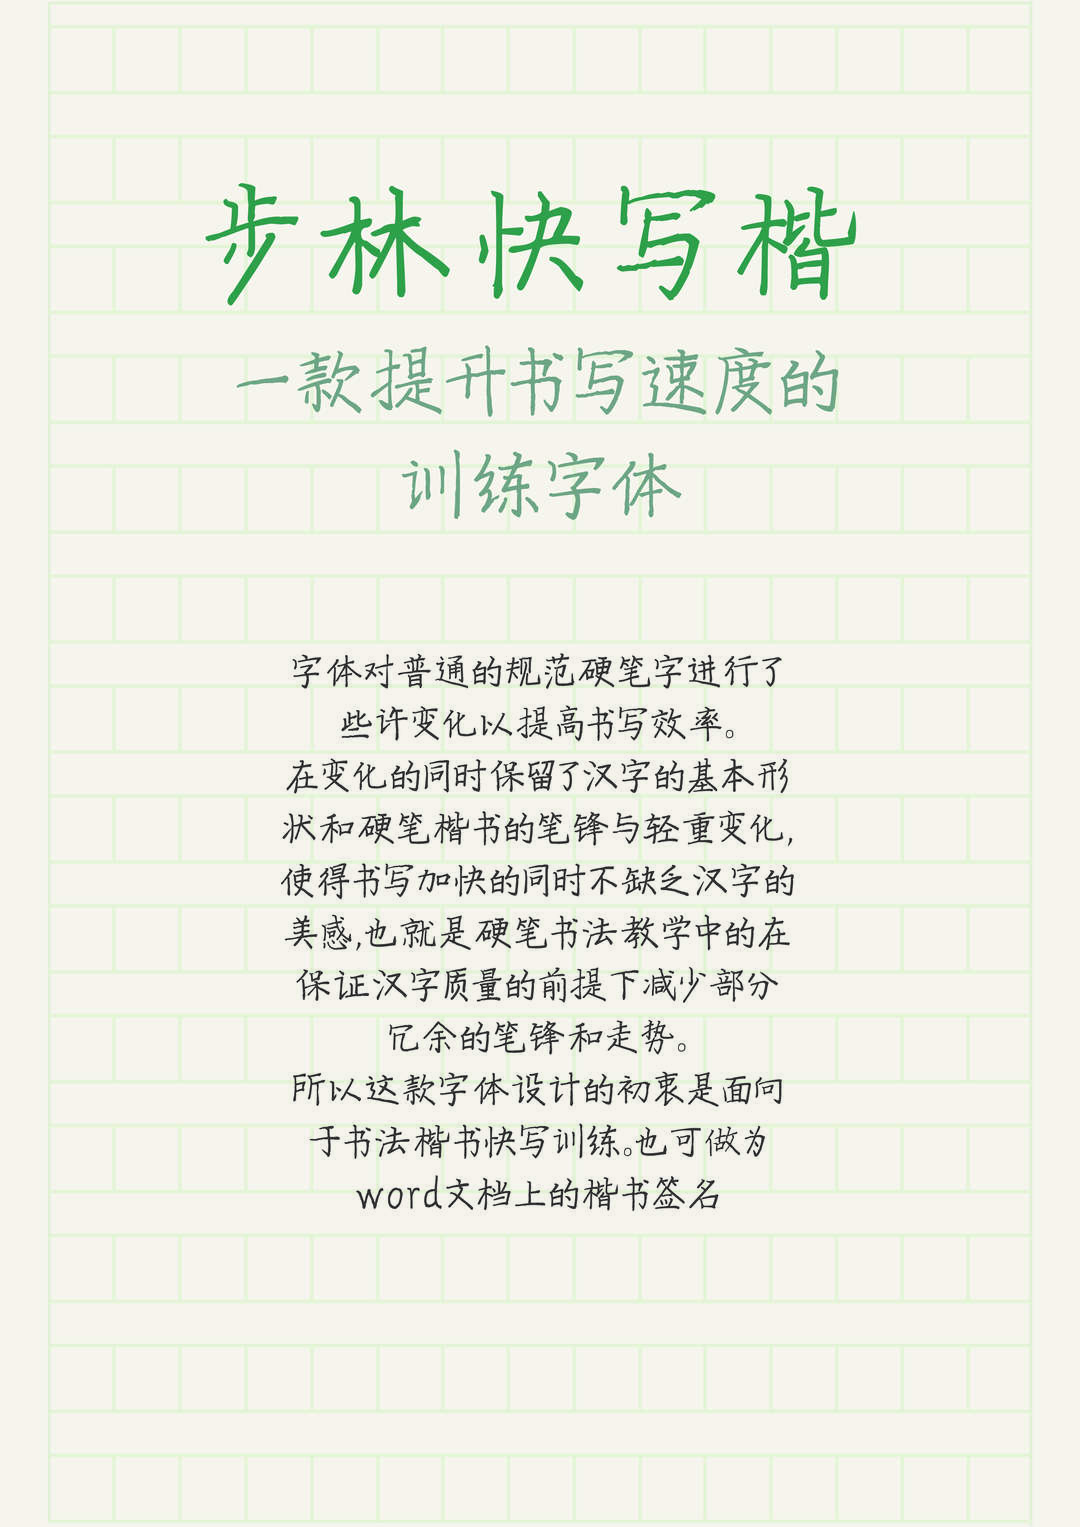 步林快写楷
一款提升书写速度的
训练字体
字体对普通的规范硬笔字进行了
些许变化以提高书写效率。
在变化的同时保留了汉字的基本形
状和硬笔楷书的笔锋与轻重变化,
使得书写加快的同时不缺乏汉字的
美感,也就是硬笔书法教学中的在
保证汉字质量的前提下减少部分
冗余的笔锋和走势。
所以这款字体设计的初衷是面向
于书法楷书快写训练。也可做为
word文档上的楷书签名